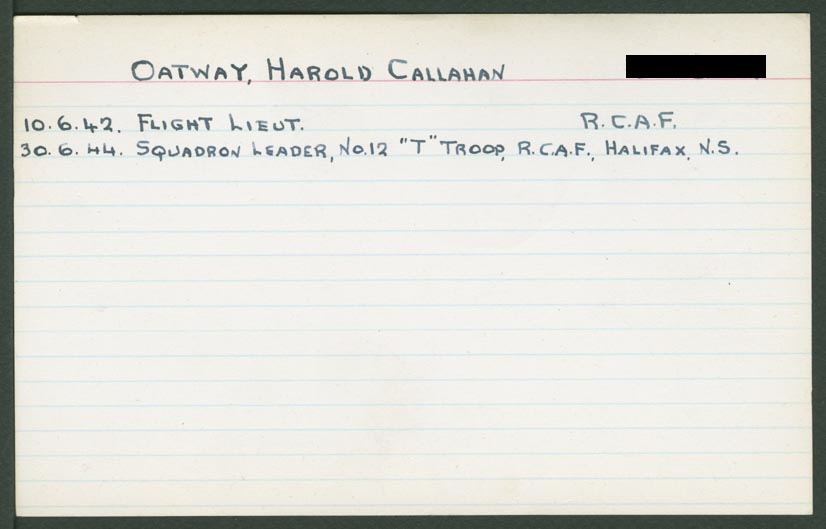 OATWAY, HAROLD CALLAHAN
10.6.42. FLIGHT LIEUT. R.C.A.F.
30.6.44. SQUADRON LEADER, NO.12 "T" TROOP, R.C.A.F., HALIFAX, N.S.